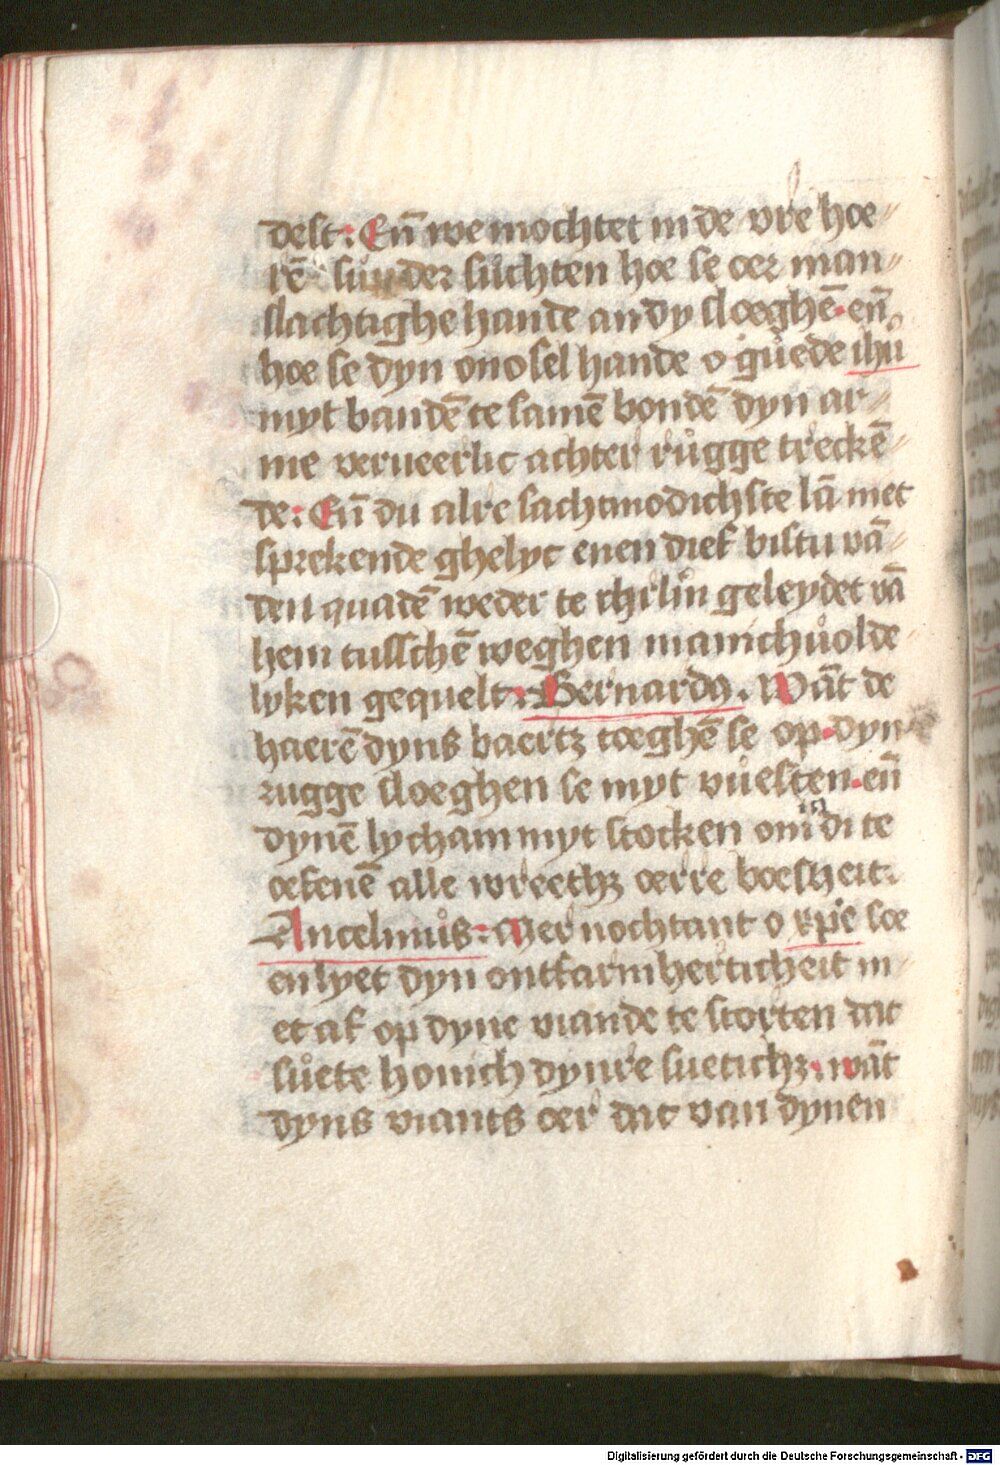 delt: En̄ we mochtet in de vre hoe〃
rē sund̉er suchten hoe se oer man〃
slachtighe hande an dy sloeghē· en̄
hoe se dyn onosel hande o guede ihū
myt bandē te samē bondē dyn ar〃
me verueerlic achter růgge treckē〃
de: En̄ du alre sachtmodichste lā met
sprekende ghelyc enen dief bistu vā〃
den quadē weder te ihrlm̄ geleydet vā
hem tusschē weghen manichuolde
lyken gequelt: Bernardꝰ. Wāt de
haerē dyns baertz toeghē se op· dyn
rugge sloeghen se myt vůesten· en̄
dynē lycham myt stocken om in di te
oefenē alle wreethz oerre boesheit:
Ancelmůs: Mer nochtant o xp̄e soe
en lyet dyn ontfarmherticheit ni〃
et af op dyne viande te storten dat
sůete honich dynre suetichz: wāt
dyns viants oer dat van dynen
Digitalisierung gefördert durch die Deutsche Forschungsgemeinschaft - DFG